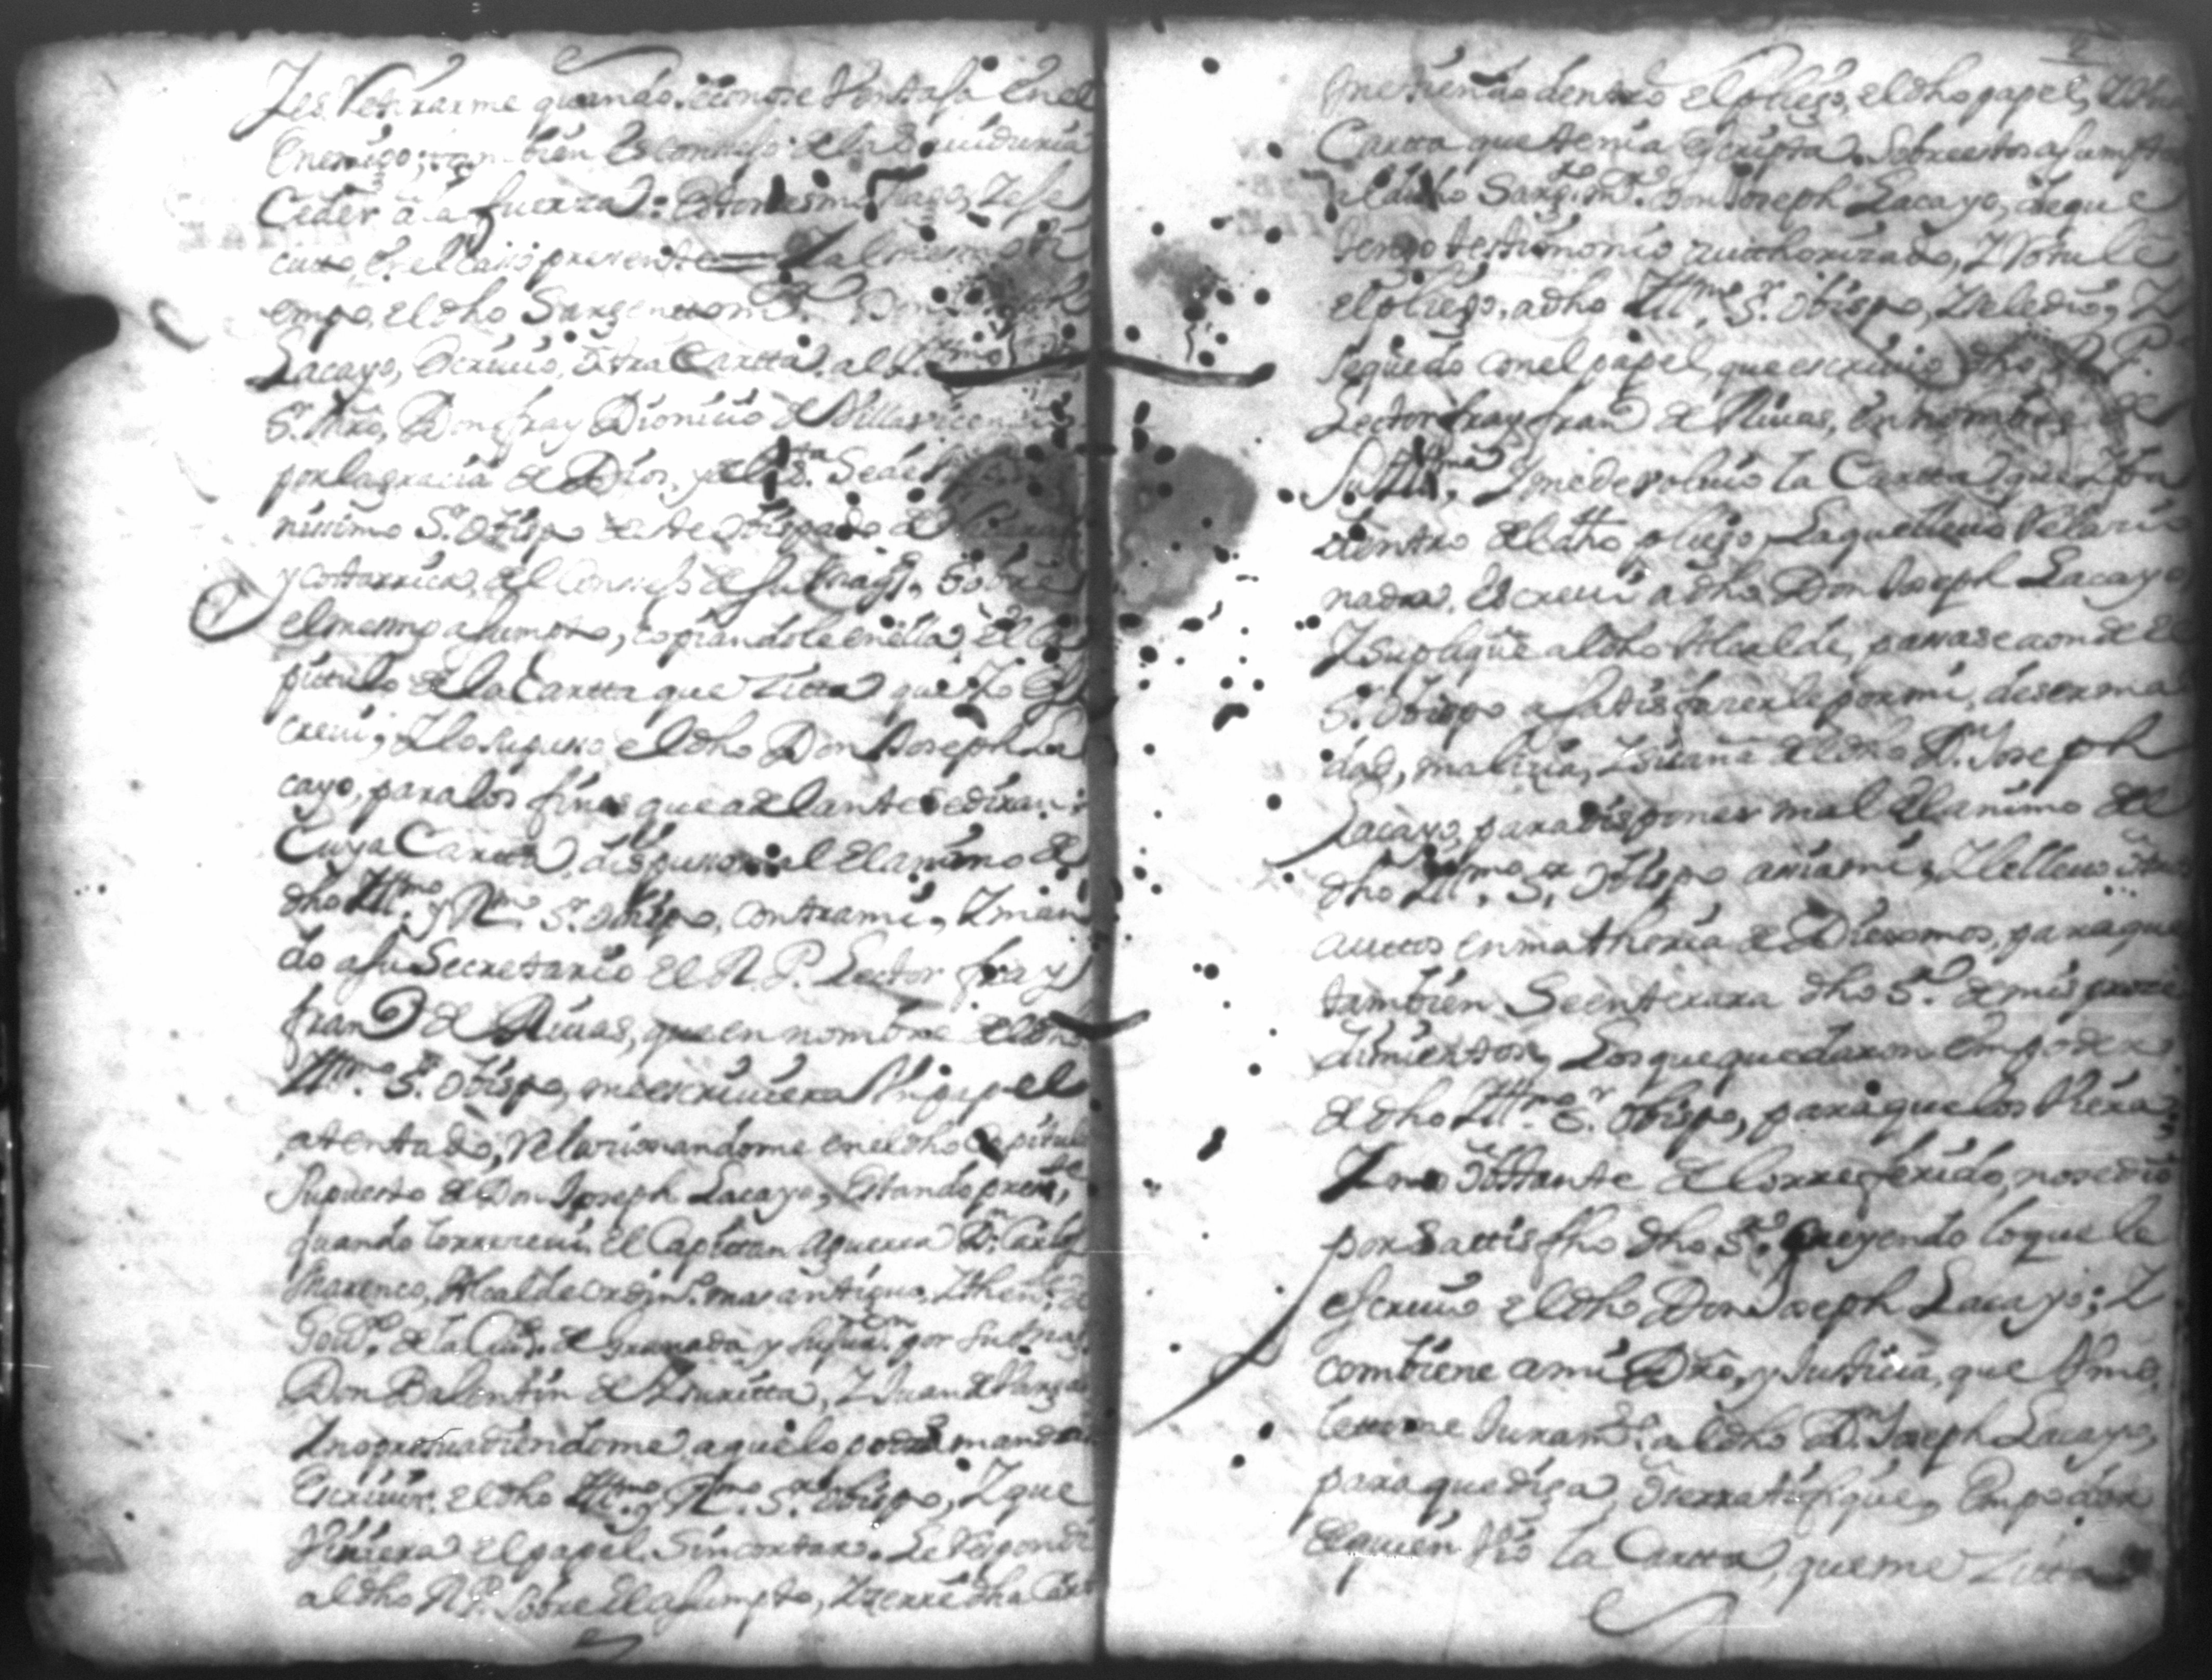 Zes Retirarme quando reconose Ventaja en el
Enemigo; tambien es consejo de la
Ceder â la fuerza: esto mesmo hago,
cutto, en el caso presente = Y al mesmo ti
empo, el dho Sargentto m.r Don Joseph
Lacayo, escriuio, ôtra Cartta, al Ill.mo
S.r Mrõ, Don fray Dionicio de Villavicencio
por la gracia de Dios, y de la S.ta Sede
nisimo S.r Obispo de este Obispado de
y costtarrica, del Consejo de su Mag.d, Sobre
el mesmo asumpto, copiandole en ella, el Ca
pittulo de la Cartta que Zitta que Yo es
creui, Y lo supuso el dho Don Joseph La
cayo, para los fines que adelante se diran:
Cuya Cartta, dispuso mal el animo de
dho Ill.mo y R.mo S.r Obispo, contra mi, Y man
do a su Secretario el R. P. Lector fray
Fran.co de Riuas, que en nombre de dho
Ill.mo S.r Obispo, me escriuiera Vn papel
atentado, Relacionandome en el dho Capitulo
Supuesto de Don Joseph Lacayo, Estando press.te
quando lo rreceui, el Capittan aguerra D.n Carlos
Marenco, Alcalde ordin.o mas antiguo, Y then.te de
Gou.or de la Ciu.d de Granada y su jur.on por su Mag.d
Don Balentin de Zuritta, Y Juan de Vargas
Y no presuadiendome a que lo podia mandar
Escriuir el dho Ill.mo y R.mo S.r Obispo, Y que
Viniera el papel Sin cortar. Le respondi
al dho R. P. sobre el asumpto, Y zerre dha Carta
2
metiendo dentro el pliego, el dho papel, Y otra
Cartta que tenia escripta. Sobre estos asumptos
el dicho Sarg.to m.r Don Joseph Lacayo, de que
tengo testimonio autthorizado, Y Rotule
el pliego, a dho Ill.mo S.r Obispo, Y se le dio, Y
se quedo con el papel, que escriuio dho R. P.
Lector fray fran.co de Riuas, en nombre de
Su Ill.ma Y me deuoluio la Cartta que Yba
dentro del dho pliego, La que lleuó Relacio
nada. Escreui a dho Don Joseph Lacayo
Y suplique al dho Alcalde, pasase a onde el
S.r Obispo a satisfazerle por mi, de ser mal
dad, malicia, Y sizaña del dho D.n Joseph
Lacayo para disponer mal el animo de
dho Ill.mo S.r Obispo asia mi, Y le lleuo
auttos en matheria de Diesmos, para que
tambien Se enterara dho S.r de mis proze
dimientos, Los que quedaron en poder
de dho Ill.mo S.r Obispo, para que los Viera.
Y no obstante de lo rreferido, no se dio
por Sattisfho dho S.r Creyendo lo que le
escriuio el dho Don Joseph Lacayo; Y
combiene a mi Drõ, y Justicia, que Vmd.
le ttome Juram.to al dho D.n Joseph Lacayo,
para que diga, o rratifique, En poder
de quien Vio la Cartta, que me Zitta